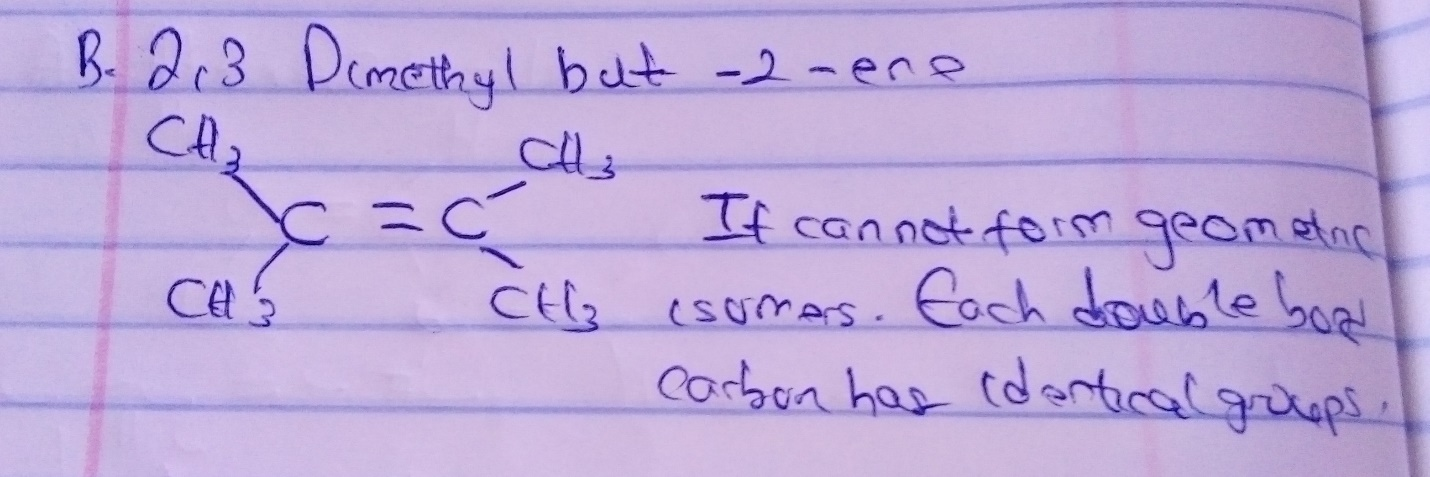 B. 2,3 Dimethyl but -2-ene
CH3 CH3
C = C
It cannot form geometric
CH3 CH3 isomers. Each double bond
carbon has identical groups.